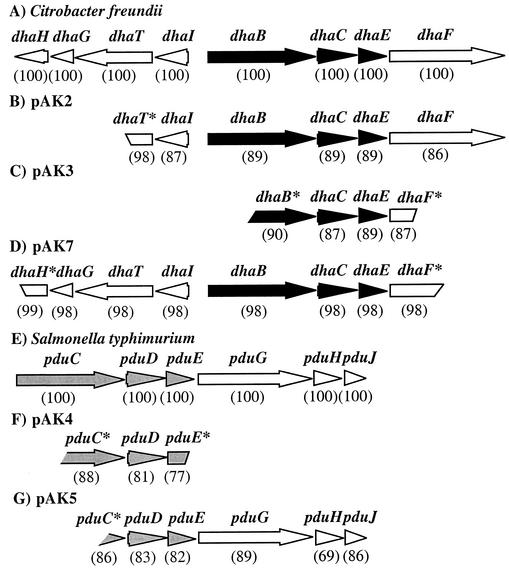 A) Citrobacter freundii
dhaH dhaG dhaT dhaI dhaB dhaC dhaE dhaF
(100)(100) (100) (100) (100) (100) (100) (100)
B) pAK2
dhaT* dhaI dhaB dhaC dhaE dhaF
(98) (87) (89) (89) (89) (86)
C) pAK3
dhaB* dhaC dhaE dhaF*
(90) (87) (89) (87)
D) pAK7
dhaH*dhaG dhaT dhaI dhaB dhaC dhaE dhaF*
(99) (98) (98) (98) (98) (98) (98) (98)
E) Salmonella typhimurium
pduC pduD pduE pduG pduH pduJ
(100) (100) (100) (100) (100)(100)
F) pAK4
pduC* pduD pduE*
(88) (81) (77)
G) pAK5
pduC* pduD pduE pduG pduH pduJ
(86) (83) (82) (89) (69) (86)